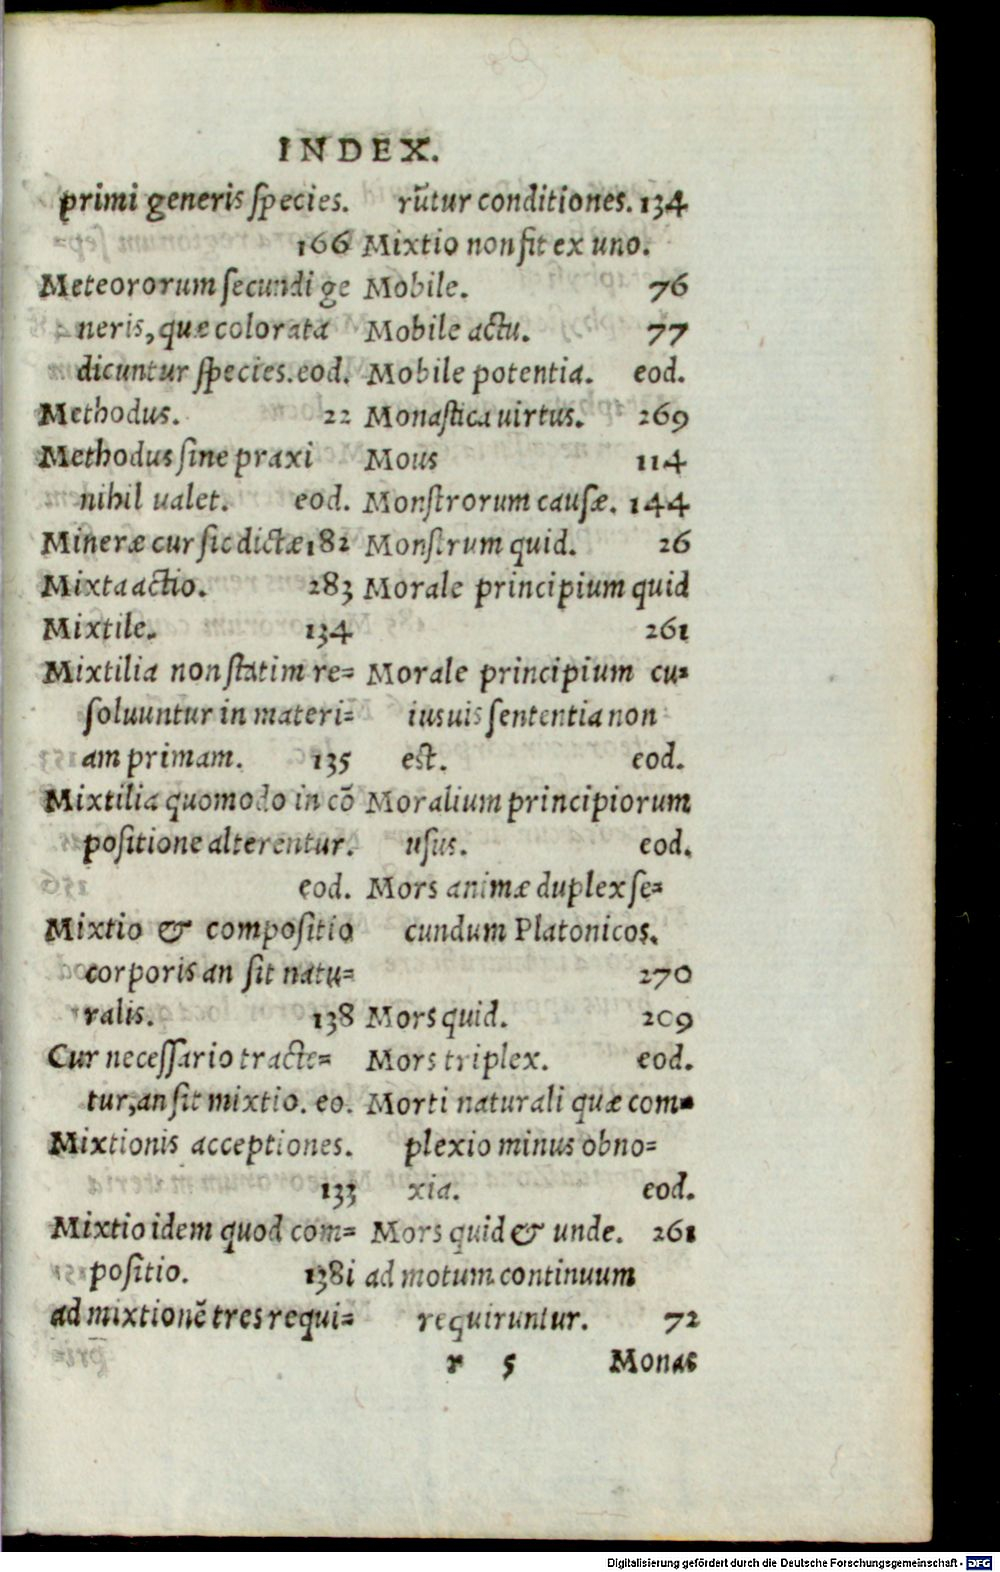 INDEX.
primi generis species.
166
Meteororum secundi ge
neris, quæ colorata
dicuntur species. eod.
Methodus. 22
Methodus sine praxi
nihil ualet. eod.
Mineræ cur sic dictæ 182
Mixta actio. 283
Mixtile. 134
Mixtilia non statim re=
soluuntur in materi=
am primam. 135
Mixtilia quomodo in cō
positione alterentur.
eod.
Mixtio & compositio
corporis an sit natu=
ralis. 138
Cur necessario tracte=
tur, an sit mixtio. eo.
Mixtionis acceptiones.
133
Mixtio idem quod com=
positio. 138
ad mixtionē tres requi=
rūtur conditiones. 134
Mixtio non fit ex uno.
Mobile. 76
Mobile actu. 77
Mobile potentia. eod.
Monastica uirtus. 269
Mous 114
Monstrorum causæ. 144
Monstrum quid. 26
Morale principium quid
261
Morale principium cu=
iusuis sententia non
est. eod.
Moralium principiorum
usus. eod.
Mors animæ duplex se=
cundum Platonicos.
270
Mors quid. 209
Mors triplex. eod.
Morti naturali quæ com=
plexio minus obno=
xia. eod.
Mors quid & unde. 261
i ad motum continuum
requiruntur. 72
r 5 Monas
Digitalisierung gefördert durch die Deutsche Forschungsgemeinschaft - DFG